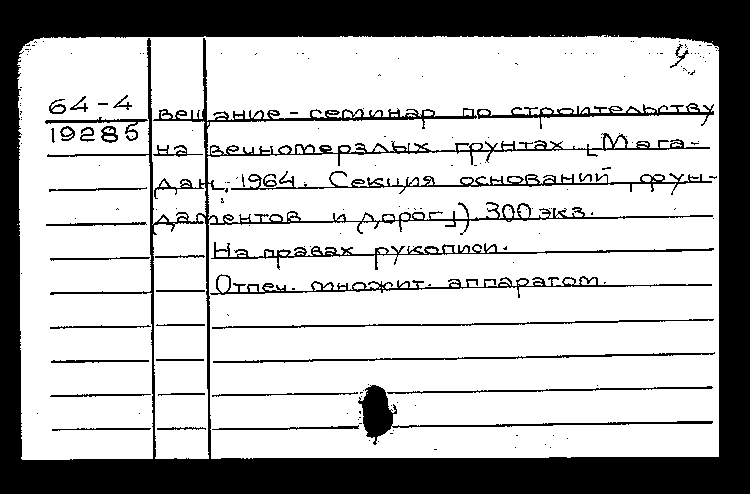 64-4
19285
вещание-семинар по строительству
на вечномерзлых грунтах. [Мага-
дан, 1964. Секция оснований, фун-
даментов и дорог]). 300 экз.
На правах рукописи.
Отпеч. множит. аппаратом.